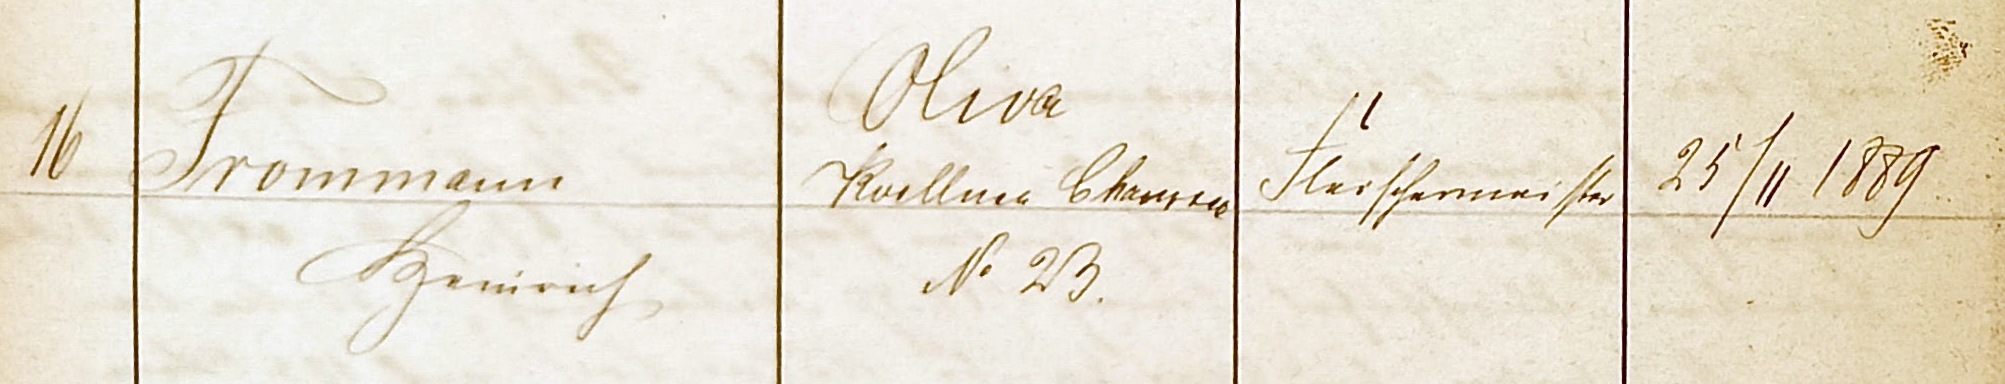 16 Frommann Oliva Fleischermeister 25/11 1889
Koellner Chaussee
Heinrich № 23.